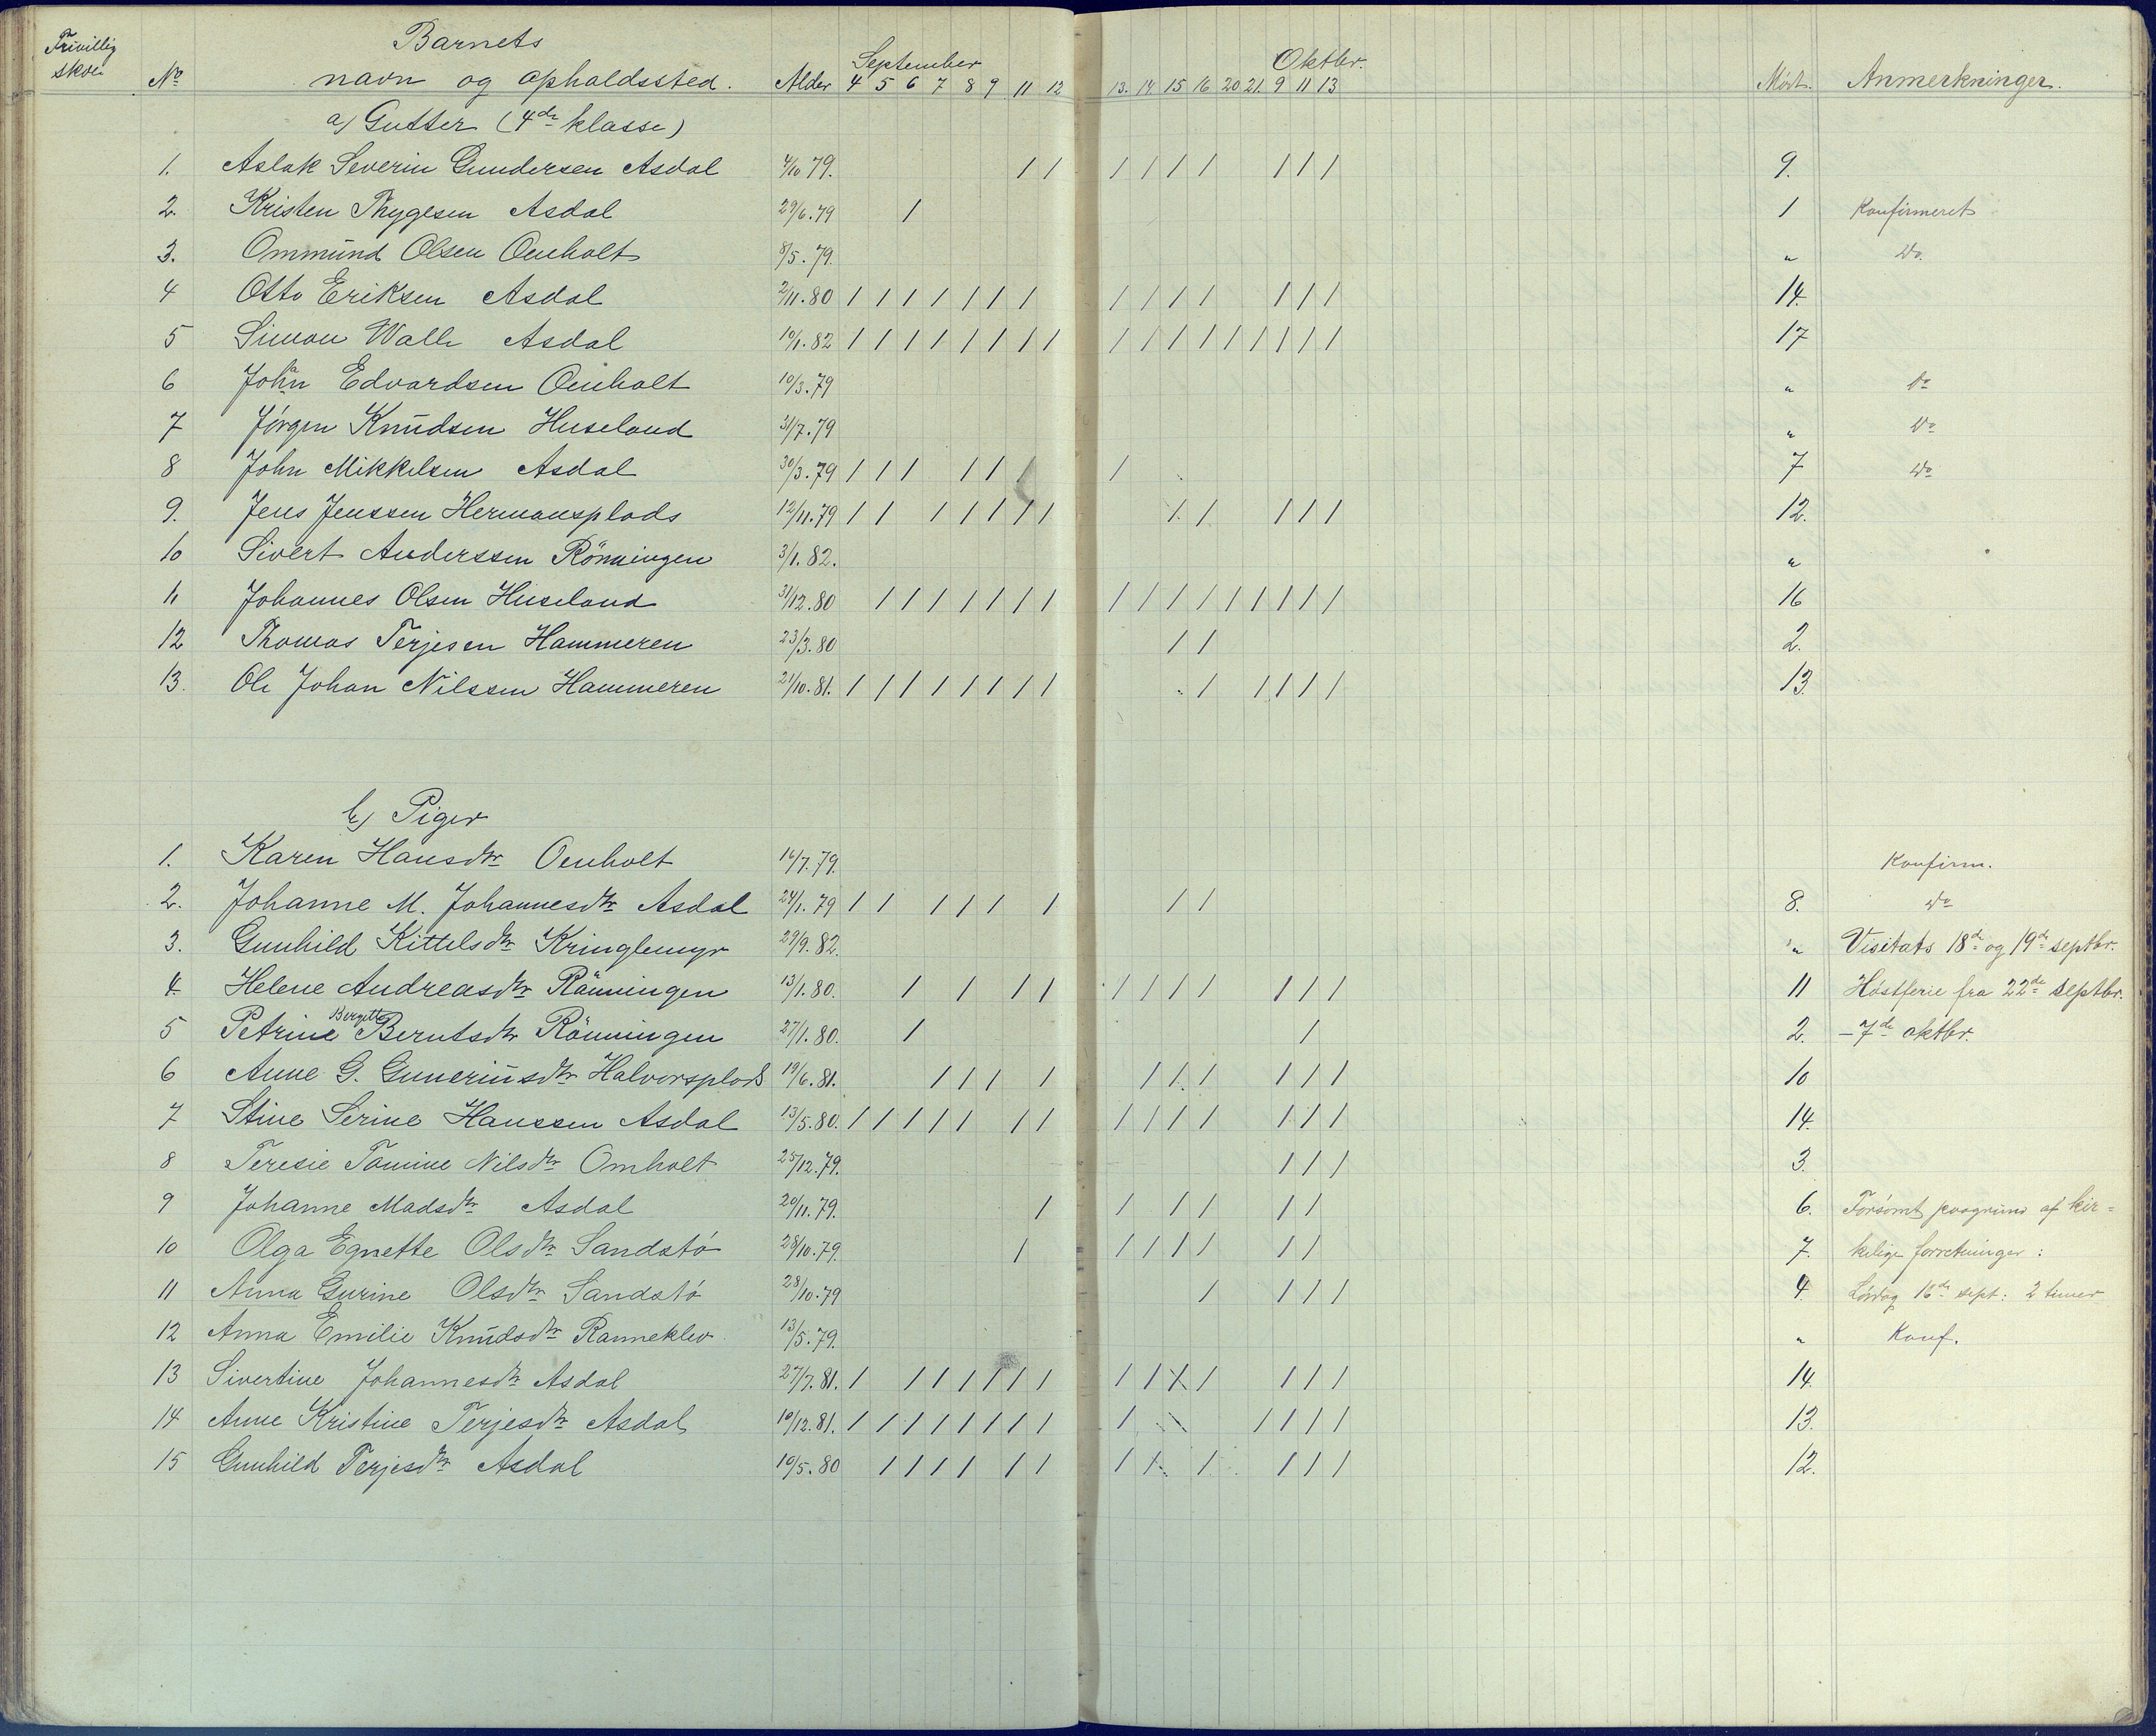 Frivillig
skole
Barnets
No navn og opholdssted. Alder September 4 5 6 7 8 9 11 12 13. 14 15 16 20 21. Oktbr. 9 11 13 Mødt. Anmerkninger.
a) Gutter (4de klasse)
1. Aslak Severin Gundersen Asdal 4/10 79. / / / / / / / / / 9.
2. Kristen Thygesen Asdal 29/6. 79 / 1 Konfirmeret
3. Ommund Olsen Omholt 8/5. 79. " Do.
4 Otto Eriksen Asdal 2/11. 80 / / / / / / / / / / / / / / 14.
5 Simon Walle Asdal 10/1. 82 / / / / / / / / / / / / / / / / / 17
6 John Edvardsen Omholt 10/3. 79 " Do
7 Jørgen Knudsen Huseland 31/7. 79 " Do
8 John Mikkelsen Asdal 30/3. 79 / / / / / / / 7 Do
9. Jens Jenssen Hermansplads 12/11. 79 / / / / / / / / / / / / 12.
10 Sivert Anderssen Rönningen 3/1. 82. "
11 Johannes Olsen Huseland 31/12. 80 / / / / / / / / / / / / / / / / 16
12 Thomas Terjesen Hammeren 23/3. 80 / / 2.
13. Ole Johan Nilssen Hammeren 21/10. 81. / / / / / / / / / / / / / 13.
b) Piger
1. Karen Hansdtr Omholt 16/7. 79. Konfirm.
2. Johanne M. Johannesdtr Asdal 24/1. 79 / / / / / / / / 8. Do
3. Gunhild Kittelsdtr Kringlemyr 29/9. 82. " Visitats 18de og 19de septbr.
4. Helene Andreasdtr Rönningen 13/1. 80. / / / / / / / / / / / 11 Høstferie fra 22de septbr.
5 Petrine Bergette Berntsdtr Rönningen 27/1. 80. / / 2. – 7de oktbr.
6 Anne G. Guneriusdtr Halvorsplads 19/6. 81. / / / / / / / / / / 10
7 Stine Serine Hanssen Asdal 13/5. 80. / / / / / / / / / / / / / / 14.
8 Teresie Tomine Nilsdtr Omholt 25/12. 79. / / / 3.
9 Johanne Madsdtr Asdal 20/11. 79. / / / / / / 6. Forsømt paagrund af kir=
10 Olga Egnette Olsdtr Sandstø 28/10. 79. / / / / / / / 7. kelige forretninger :
11 Anna Gurine Olsdtr Sandstø 28/10. 79 / / / / 4. Lørdag 16de sept: 2 timer
12 Anna Emilie Knudsdtr Ranneklev 13/5. 79. " Konf.
13 Sivertine Johannesdtr Asdal 27/7. 81. / / / / / / / / / / / / / / 14.
14 Anne Kristine Terjesdtr Asdal 10/12. 81. / / / / / / / / / / / / / 13.
15 Gunhild Terjesdtr Asdal 10/5. 80 / / / / / / / / / / / / 12.